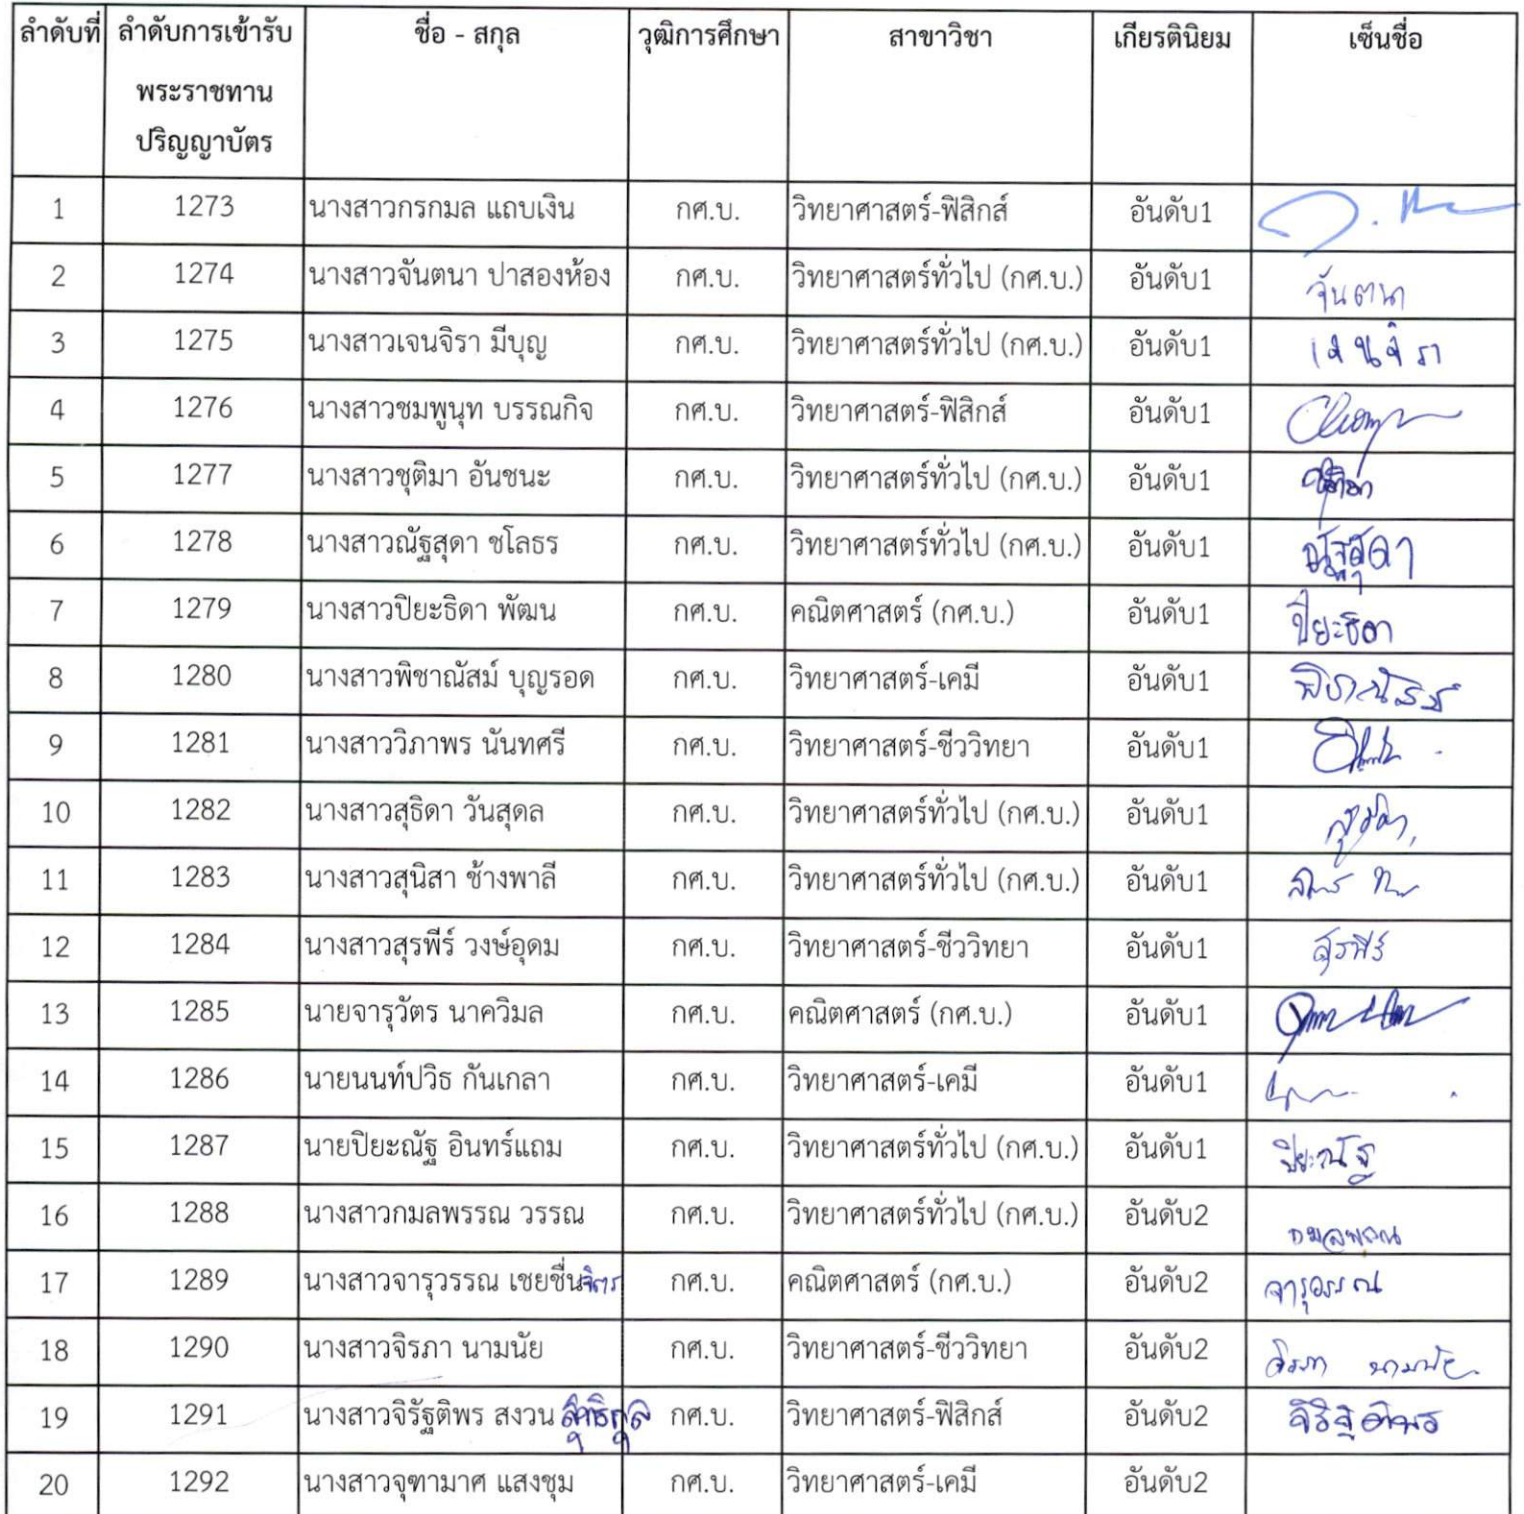 ลำดับที่ ลำดับการเข้ารับ ชื่อ - สกุล วุฒิการศึกษา สาขาวิชา เกียรตินิยม เซ็นชื่อ
พระราชทาน
ปริญญาบัตร
1 1273 นางสาวกรกมล แถบเงิน กศ.บ. วิทยาศาสตร์-ฟิสิกส์ อันดับ1
2 1274 นางสาวจันตนา ปาสองห้อง กศ.บ. วิทยาศาสตร์ทั่วไป (กศ.บ.) อันดับ1 จันตนา
3 1275 นางสาวเจนจิรา มีบุญ กศ.บ. วิทยาศาสตร์ทั่วไป (กศ.บ.) อันดับ1 เจนจิรา
4 1276 นางสาวชมพูนุท บรรณกิจ กศ.บ. วิทยาศาสตร์-ฟิสิกส์ อันดับ1
5 1277 นางสาวชุติมา อันชนะ กศ.บ. วิทยาศาสตร์ทั่วไป (กศ.บ.) อันดับ1
6 1278 นางสาวณัฐสุดา ชโลธร กศ.บ. วิทยาศาสตร์ทั่วไป (กศ.บ.) อันดับ1 ณัฐสุดา
7 1279 นางสาวปิยะธิดา พัฒน กศ.บ. คณิตศาสตร์ (กศ.บ.) อันดับ1 ปิยะธิดา
8 1280 นางสาวพิชาณัสม์ บุญรอด กศ.บ. วิทยาศาสตร์-เคมี อันดับ1 พิชาณัสม์
9 1281 นางสาววิภาพร นันทศรี กศ.บ. วิทยาศาสตร์-ชีววิทยา อันดับ1
10 1282 นางสาวสุธิดา วันสุดล กศ.บ. วิทยาศาสตร์ทั่วไป (กศ.บ.) อันดับ1 สุธิดา
11 1283 นางสาวสุนิสา ช้างพาลี กศ.บ. วิทยาศาสตร์ทั่วไป (กศ.บ.) อันดับ1
12 1284 นางสาวสุรพีร์ วงษ์อุดม กศ.บ. วิทยาศาสตร์-ชีววิทยา อันดับ1 สุรพีร์
13 1285 นายจารุวัตร นาควิมล กศ.บ. คณิตศาสตร์ (กศ.บ.) อันดับ1
14 1286 นายนนท์ปวิธ กันเกลา กศ.บ. วิทยาศาสตร์-เคมี อันดับ1
15 1287 นายปิยะณัฐ อินทร์แถม กศ.บ. วิทยาศาสตร์ทั่วไป (กศ.บ.) อันดับ1 ปิยะณัฐ
16 1288 นางสาวกมลพรรณ วรรณ กศ.บ. วิทยาศาสตร์ทั่วไป (กศ.บ.) อันดับ2 กมลพรรณ
17 1289 นางสาวจารุวรรณ เชยชื่นจิตร กศ.บ. คณิตศาสตร์ (กศ.บ.) อันดับ2 จารุวรรณ
18 1290 นางสาวจิรภา นามนัย กศ.บ. วิทยาศาสตร์-ชีววิทยา อันดับ2 จิรภา นามนัย
19 1291 นางสาวจิรัฐติพร สงวน กศ.บ. วิทยาศาสตร์-ฟิสิกส์ อันดับ2 จิรัฐติพร
20 1292 นางสาวจุฑามาศ แสงชุม กศ.บ. วิทยาศาสตร์-เคมี อันดับ2